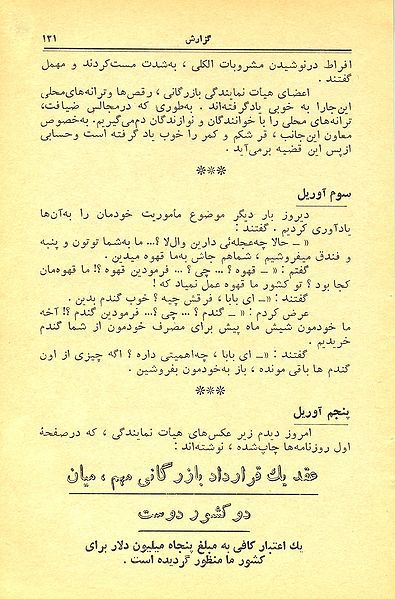 گزارش ۱۳۱
افراط درنوشیدن مشروبات الکلی ، به‌شدت مست‌کردند و مهمل
گفتند .
اعضای هیات نمایندگی بازرگانی ، رقص‌ها وترانه‌های‌محلی
این‌جارا به خوبی یادگرفته‌اند . به‌طوری که درمجالس ضیافت،
ترانه‌های محلی را با خوانندگان و نوازندگان دم‌می‌گیریم. به‌خصوص
معاون این‌جانب ، قر شکم و کمر را خوب یاد گرفته است وحسابی
ازپس این قضیه برمی‌آید .
***
سوم آوریل
دیروز بار دیگر موضوع ماموریت خودمان را به‌آن‌ها
یادآوری کردیم . گفتند :
« – حالا چه‌عجله‌ئی دارین والا؟... ما به‌شما توتون و پنبه
و فندق میفروشیم ، شماهم جاش به‌ما قهوه میدین .
گفتم : « – قهوه ؟ ... چی ؟ ... فرمودین قهوه ؟! ما قهوه‌مان
کجا بود ؟ تو کشور ما قهوه عمل نمیاد که !
گفتند : « – ای بابا ، فرقش چیه ؟ خوب گندم بدین .
عرض کردم : « – گندم ؟ ... چی ؟... فرمودین گندم ؟! آخه
ما خودمون شیش ماه پیش برای مصرف خودمون از شما گندم
خریدیم .
گفتند : « – ای بابا ، چه‌اهمیتی داره ؟ اگه چیزی از اون
گندم ها باقی مونده ، باز به‌خودمون بفروشین .
***
پنجم آوریل
امروز دیدم زیر عکس‌های هیات نمایندگی ، که درصفحهٔ
اول روزنامه‌ها چاپ‌شده ، نوشته‌اند :
عقد یك قرارداد بازرگانی مهم ، میان
دو کشور دوست
یك اعتبار کافی به مبلغ پنجاه میلیون دلار برای
کشور ما منظور گردیده است .